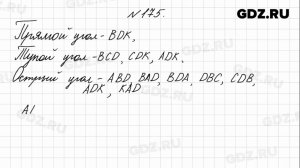 GDZ.RU
№175.
Прямой угол - BDK,
Тупой угол - BCD, CDK, ADK.
Острый угол - ABD, BAD, BDA, DBC, CDB,
ADK, KAD.
A1